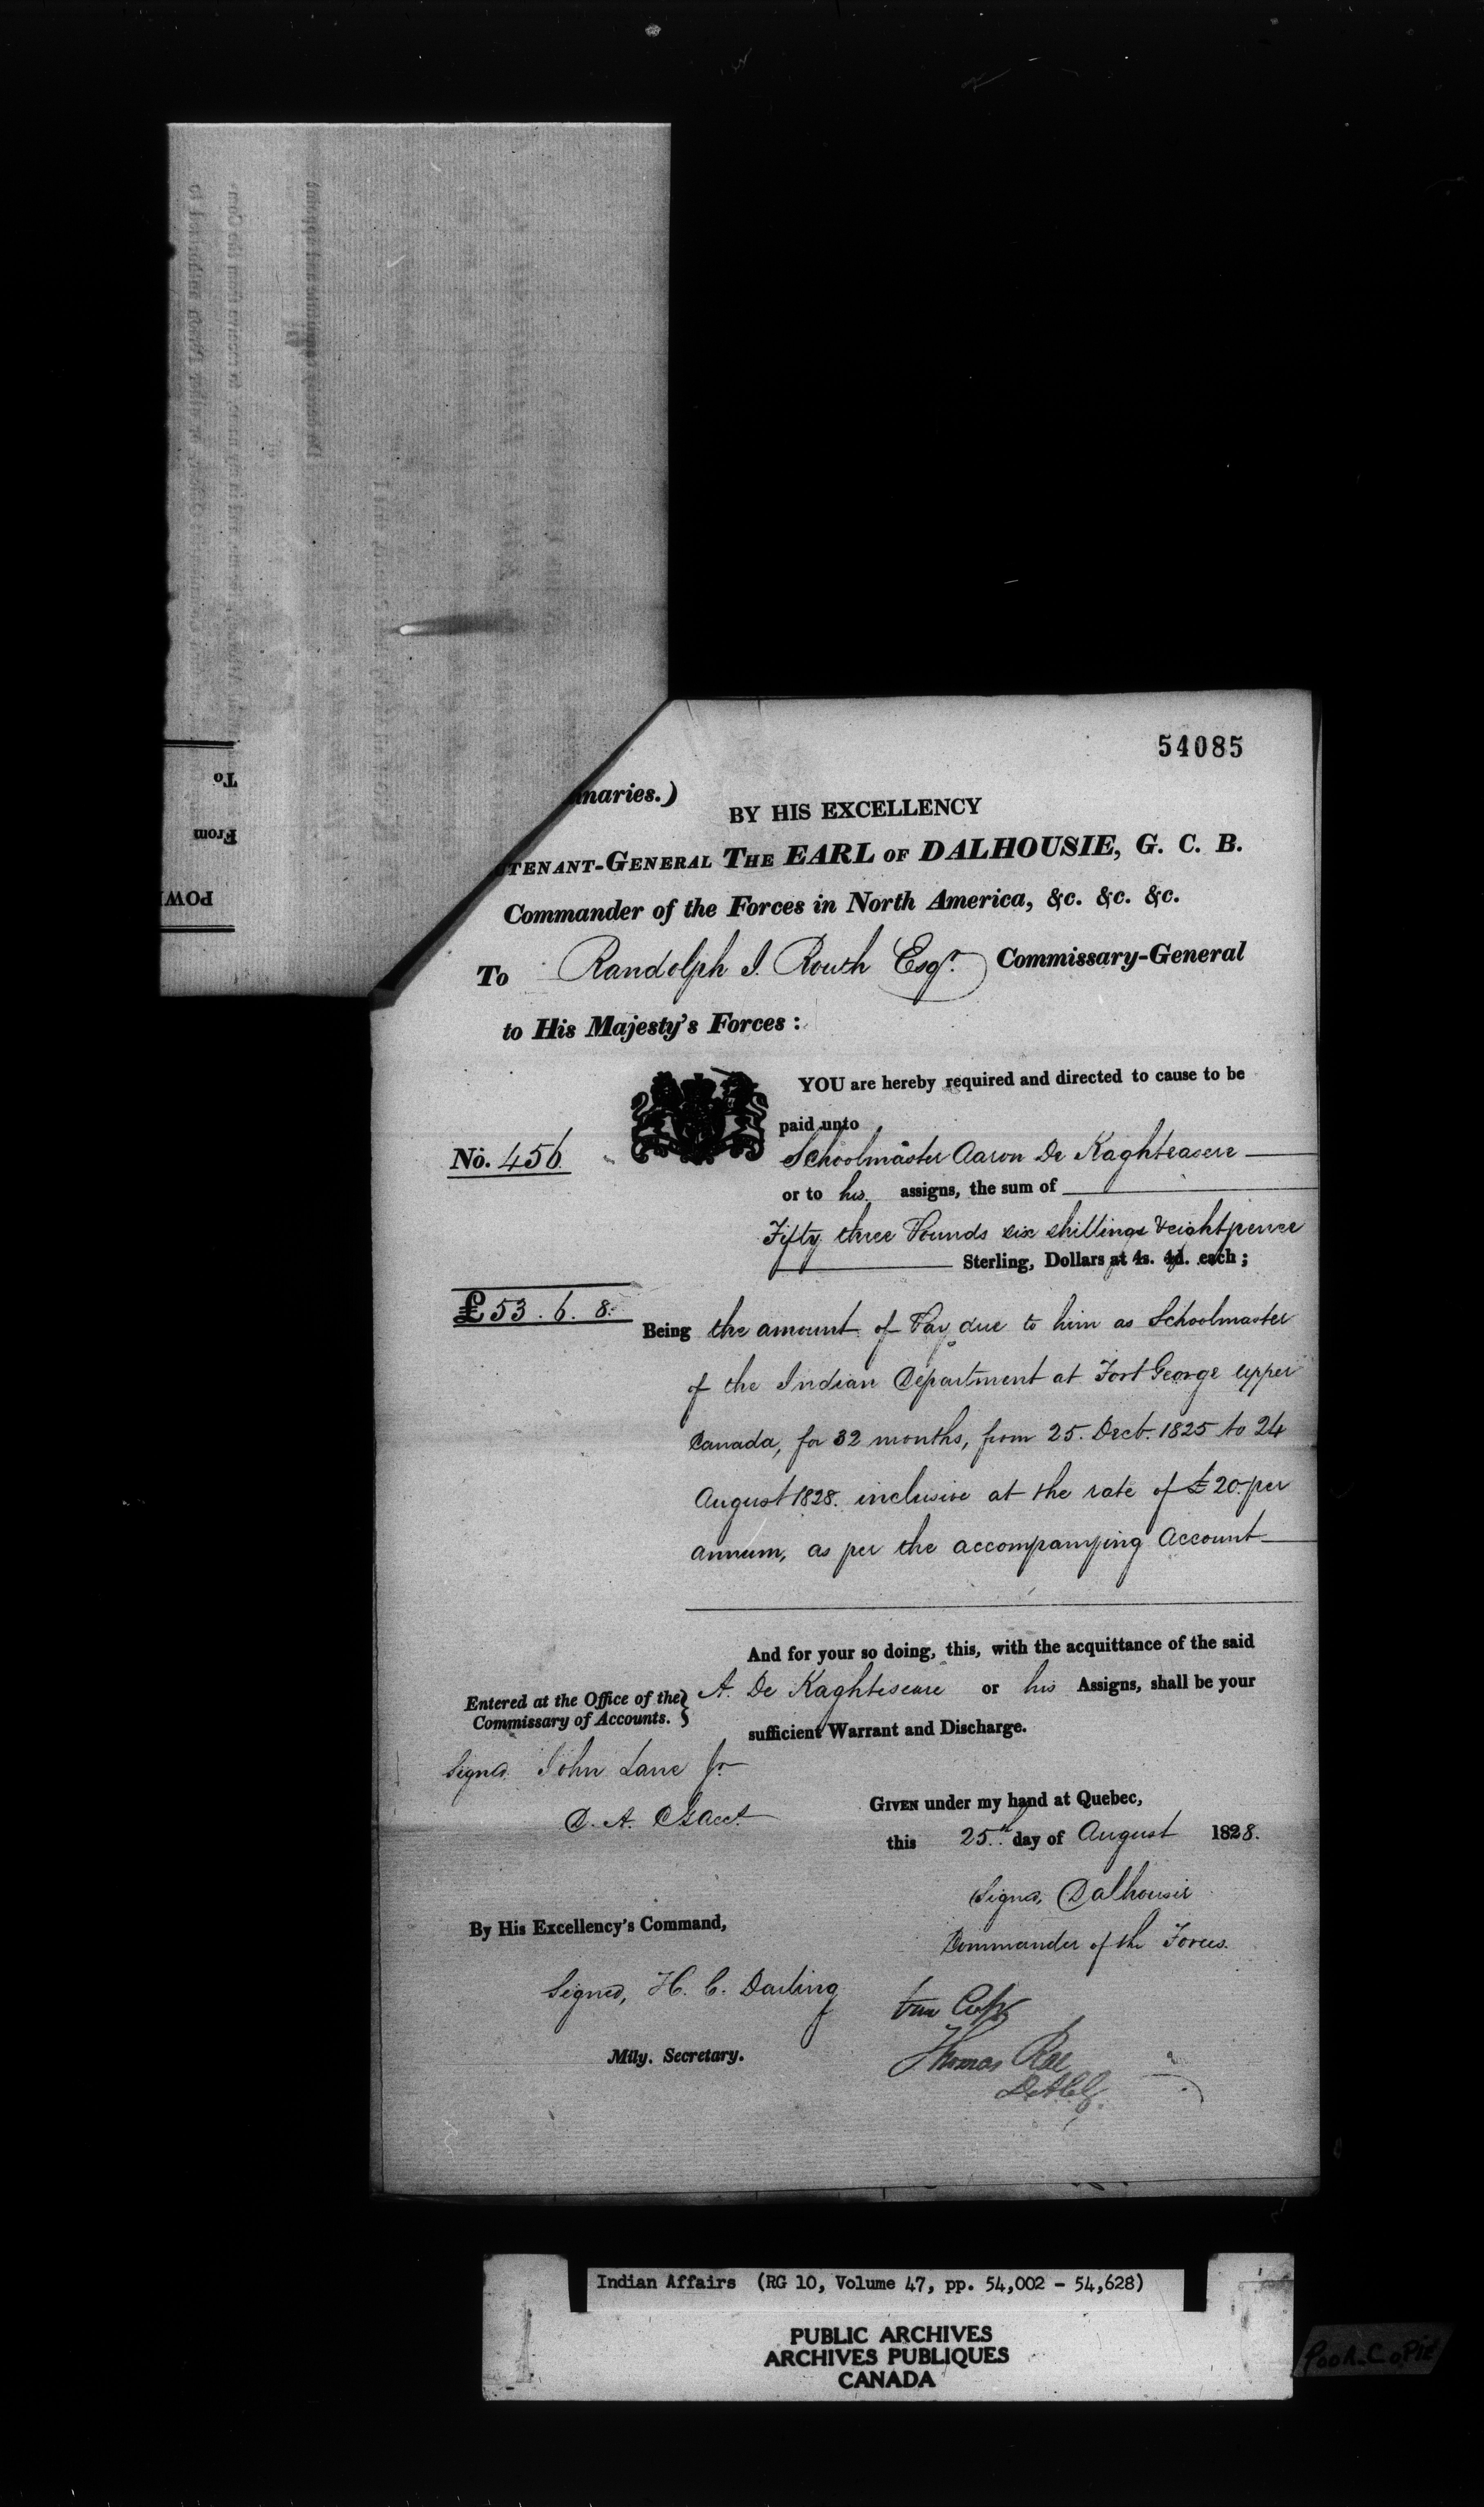 54085
naries.)
BY HIS EXCELLENCY
TENANT-GENERAL THE EARL OF DALHOUSIE, G. C. B.
Commander of the Forces in North America, &c. &c. &c.
To Randolph I. Routh Esqr. Commissary-General
to His Majesty's Forces :
YOU are hereby required and directed to cause to be
paid unto
No. 456 Schoolmaster Aaron De Kaghteasere
or to his assigns, the sum of
Fifty three Pounds six shillings & eightpence
Sterling, Dollars at 4s. 4d. each ;
£53. 6. 8.
Being the amount of Pay due to him as Schoolmaster
of the Indian Department at Fort George Upper
Canada, for 32 months, from 25. Decb. 1825 to 24
August 1828. inclusive at the rate of £20. per
annum, as per the accompanying Account
And for your so doing, this, with the acquittance of the said
A. De Kaghteseare or his Assigns, shall be your
sufficient Warrant and Discharge.
Entered at the Office of the
Commissary of Accounts.
Signed John Lane Jr
D. A.
GIVEN under my hand at Quebec,
this 25th day of August 1828.
Signed, Dalhousie
Commander of the Forces.
By His Excellency's Command,
Signed, H. C. Darling
Mily. Secretary.
true Copy
Thomas Rae
D.A.C.G.
To
From
POW
Do hereby constitute and appoint
Indian Affairs (RG 10, Volume 47, pp. 54,002 - 54,628)
PUBLIC ARCHIVES
ARCHIVES PUBLIQUES
CANADA
POOR COPIE